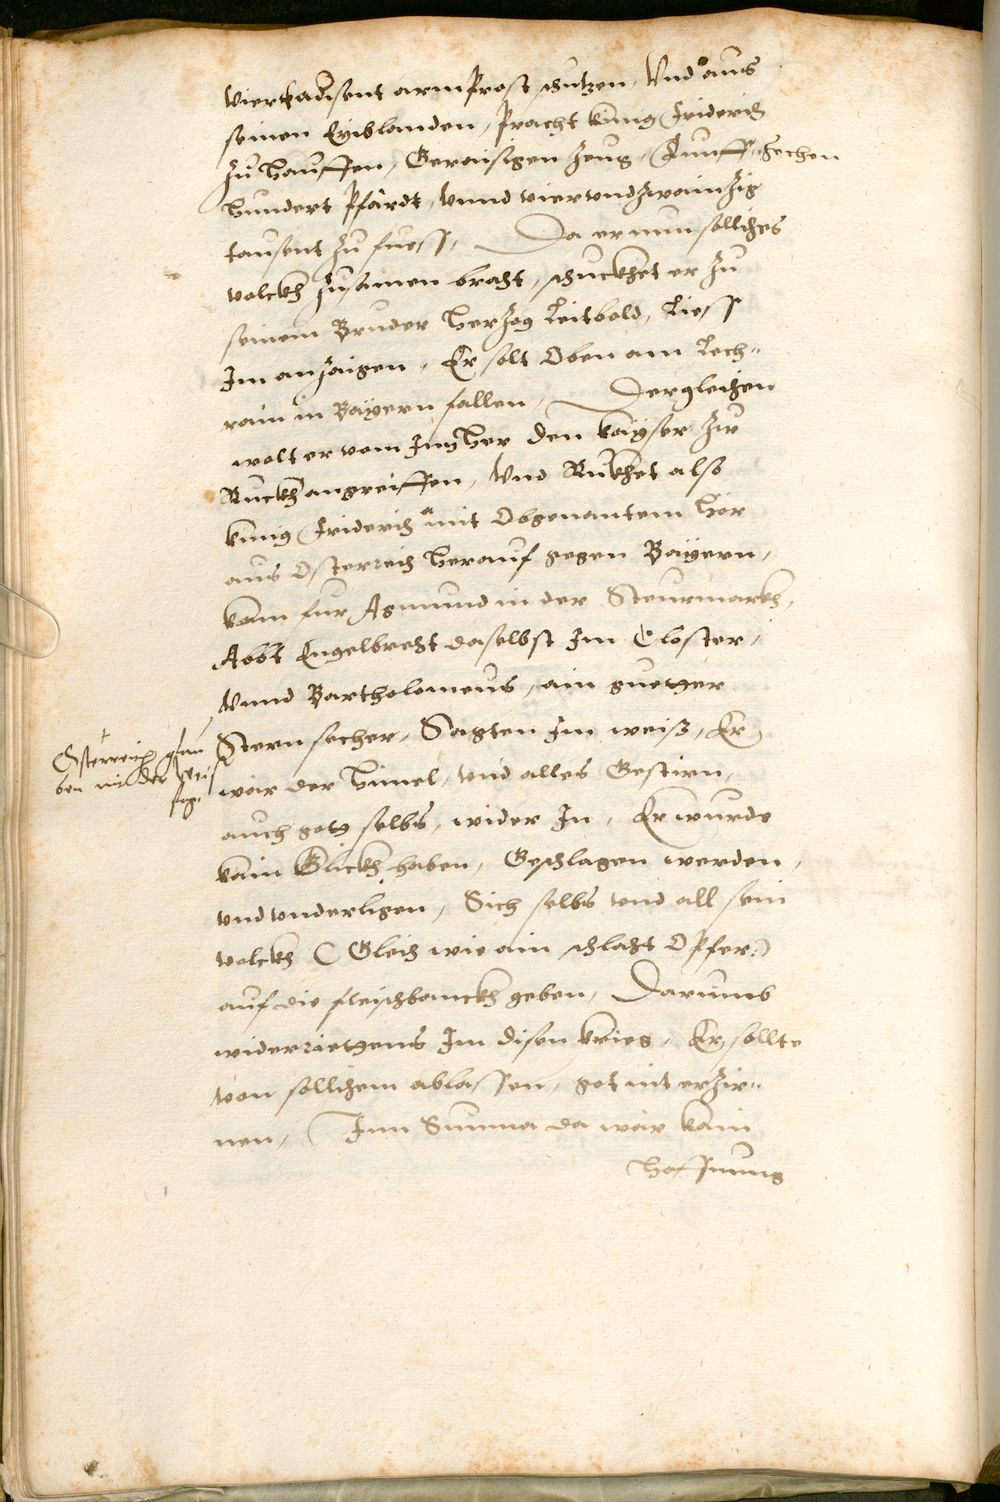 viertadusent armprost schutzen, Vnd aus
seinen Eriblanden, Pracht künig Friderich
zu hauffen, Geraisigen zeug, Funff-zechen
hundert Pfärdt, vnnd viervndzwainzig
tausent zu fuess, Da er nun sollches
volckh zusamen bracht, schuckhet er zu
seinem Bruder Herzog Leitbold, Liess
Im anzaigen, Er solt Oben am Lech-
rain in Bayern fallen, Dergleichen
wolt er vom Innher den kayser zu
Ruckh angreiffen, Vnd Rukhet also
künig Friderich mit Obgenantem hör
aus Osterreich herauf gegen Bayern,
kam fur Agmund in der Steurmarkh,
Abbt Engelbrecht daselbst Im Closter,
Vnnd Bartholomeus, ain guetter
Stern secher, Sagten Im weiß, Er
wär der himel, vnd alles Gestirn,
Österreich glau
ben nit der weis
sag.
auch gott selbs, wider In, Er wurde
kain Glickh haben, Geschlagen werden,
vnd vnderligen, Sich selbs vnd all sein
volckh (Gleich wie ain schlacht Opfer)
auf die fleischbanckh geben, Darumb
widerriettens Im disen krieg, Er sollte
von sollichem ablassen, got nit erzir-
nen, Inn Summa da wär kain
hoffnung